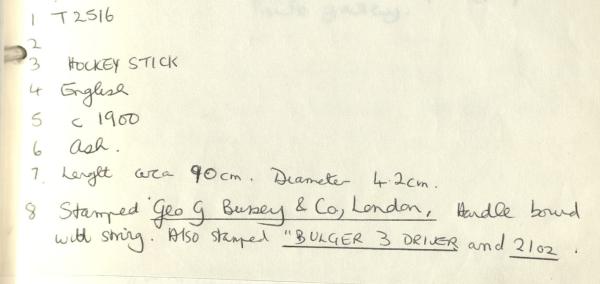 1 T2516
2
3 HOCKEY STICK
4 English
5 c 1900
6 Ash.
7. Lenght circa 90cm. Diameter 4.2cm.
8 Stamped "Geo G Bussey & Co, London, Handle bound
with string. Also stamped "BULGER 3 DRIVER and 21oz.